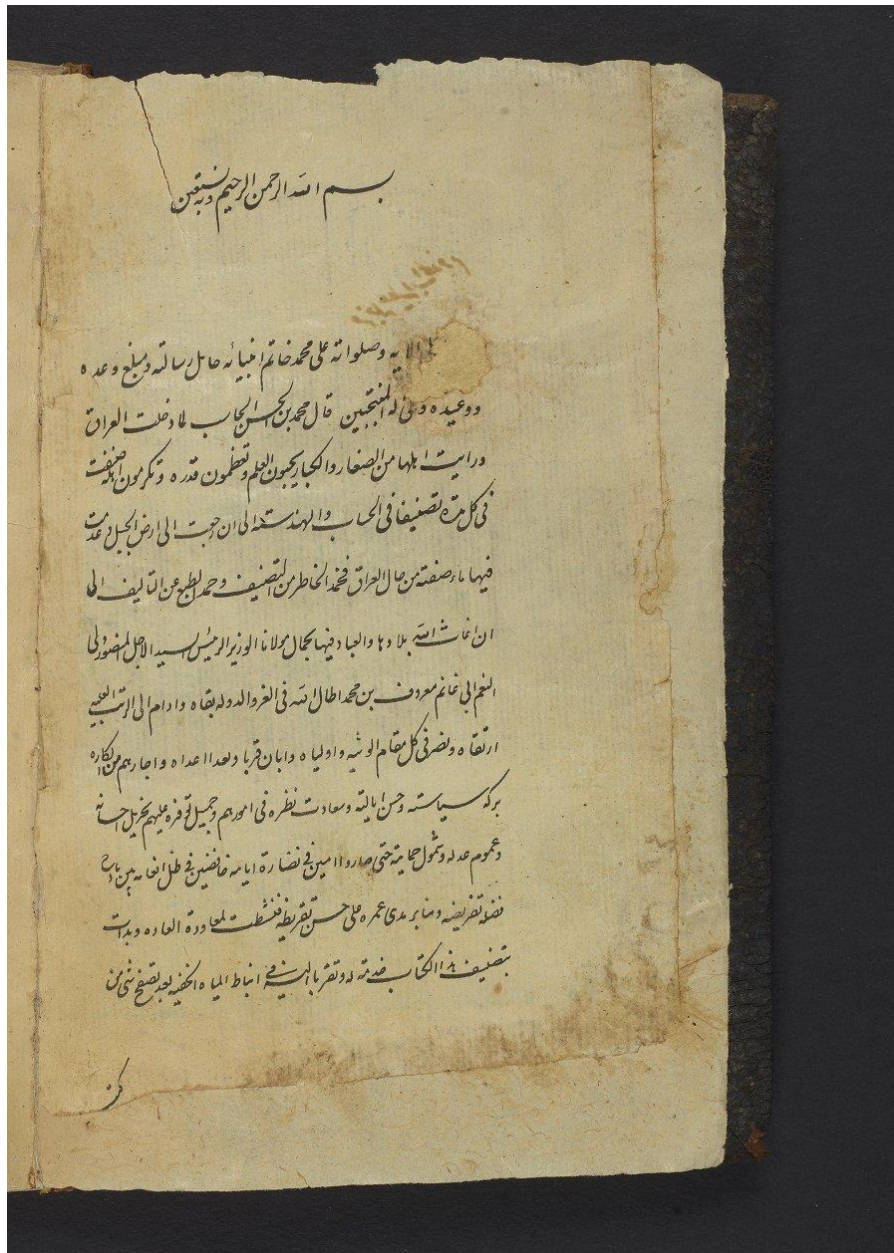 بسم الله الرحمن الرحيم وبه نستعين
الايه وصلواته على محمد خاتم انبيائه حامل رسالته ومبلغ وعده
ووعيده وعلى اله المنتجبين قال محمد بن الحسن الحاسب لما دخلت العراق
ورايت اهلها من الصغار والكبار يحبون العلم وتعظمون قدره وتكرمون اهله صنفت
فى كل مدة تصنيفا فى الحساب والهندسة الى ان رجعت الى ارض الجبل وعدمت
فيها ما وصفته من حال العراق فخمد الخاطر من التصنيف وجمد الطبع عن التاليف الى
ان اغاث الله بلادها والعباد فيها بجمال مولانا الوزير الرئيس السيد الاجل المنصور ولى
النعم ابى غانم معروف بن محمد اطال الله فى العز والدوله بقاه وادام الى الرتب العليه
ارتقاه ونصر فى كل مقام الويته واولياه وابان قربا وبعدا اعداه واجارهم من المكاره
بركه سياسته وحسن ايالته وسعادت نظره فى امورهم وجميل توفره عليهم بجزيل احسانه
وعموم عدله وشمول حمايته حتى صاروا امنين فى نضارة ايامه خافضين فى ظل انعامه بين
فضله تفريضه ومثابر مدى عمره على حسن تقريظه فنشطت لمعاودة العاده وبدات
بتصنيف هذا الكتاب خدمة له وتقربا اليه فى انباط المياه الخفيه بعد تصفح شى من